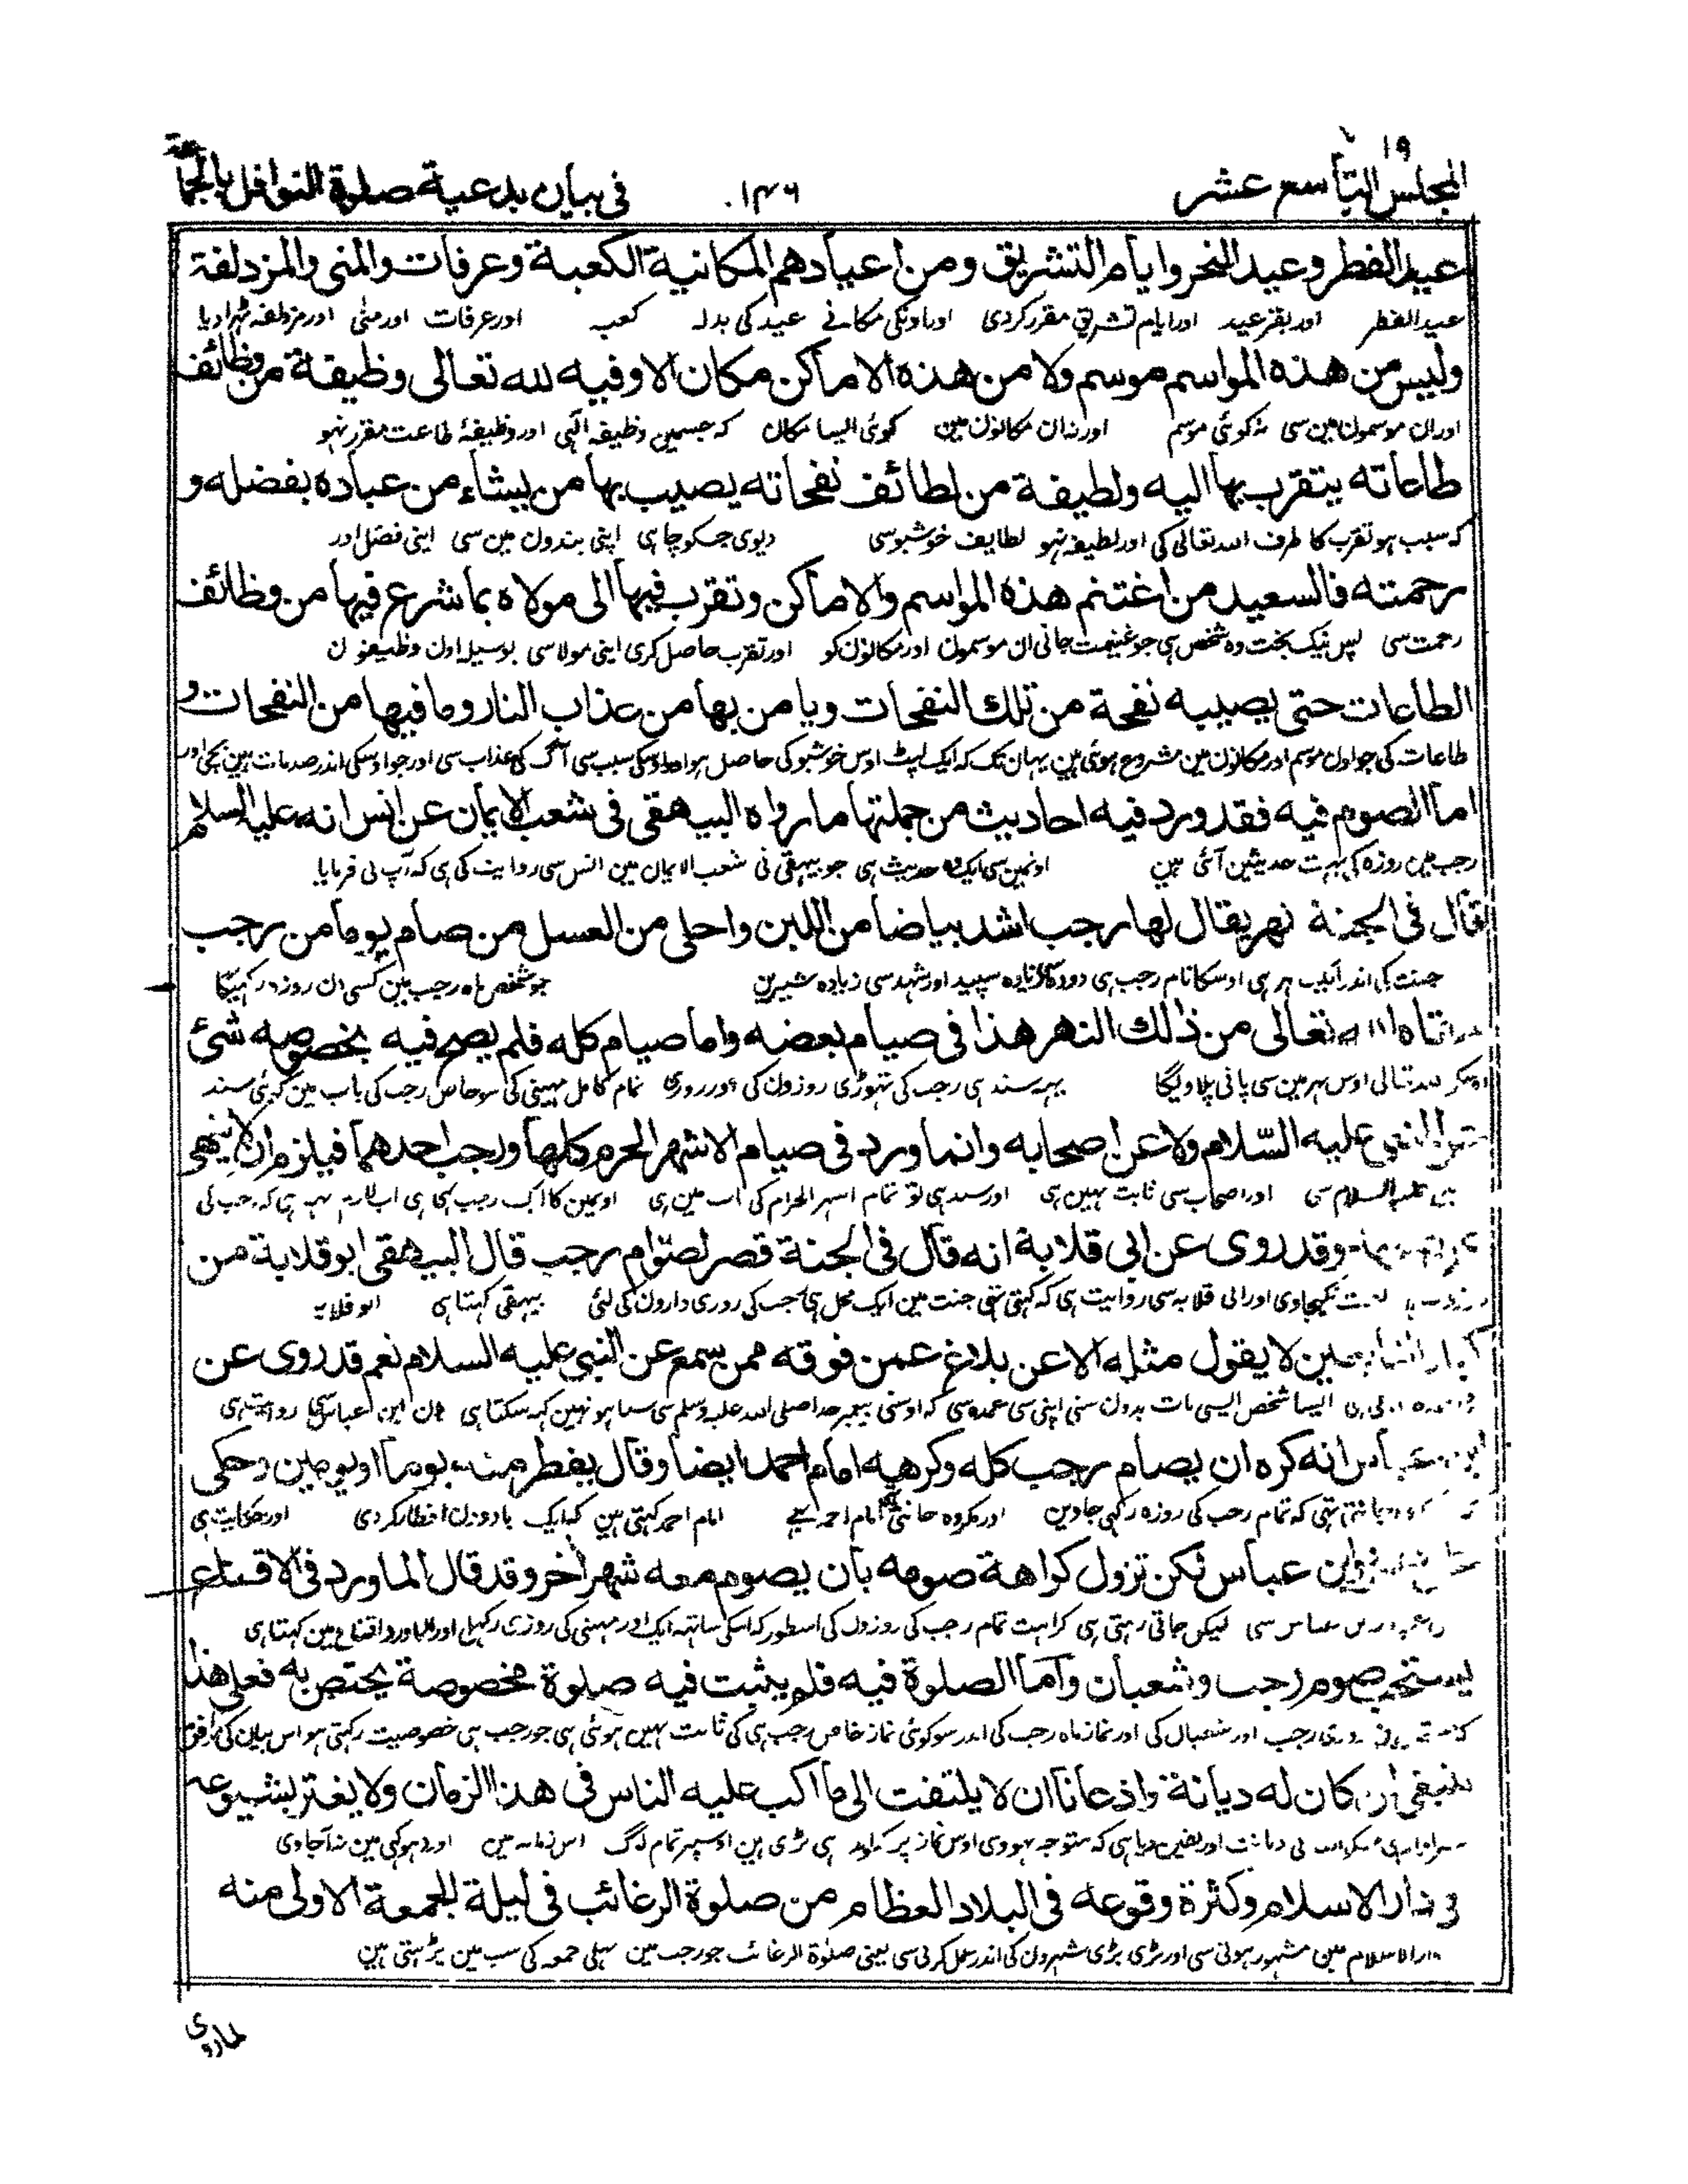 ١٩
المجلس التاسع عشر
١٤٦
في بيان بدعية صلوة النوافل بالجماعة
عيد الفطر وعيد النحر وايام التشريق ومن اعيادهم المكانية الكعبة وعرفات والمنى والمزدلفة
عيد الفطر اور بقر عيد اور ايام تشريق مقرر كردى اور اونكى مكانے عيد كى بدلہ كعبہ اور عرفات اور منٰى اور مزدلفہ ٹہرا ديا
وليس من هذه المواسم موسم ولا من هذه الاماكن مكان الا وفيه لله تعالى وظيفة من وظائف
اور ان موسمون مين سى نہ كوئى موسم اور نہ ان مكانون مين كوئى ايسا مكان كہ جسمين وظيفہ الٓہى اور وظيفۂ طاعت مقرر نہو
طاعاته يتقرب بها اليه ولطيفة من لطائف نفحاته يصيب بها من يشاء من عباده بفضله و
كہ سبب ہو تقرب كا طرف اللہ تعالى كى اور لطيفہ نہو لطايف خوشبو سى ديوى جسكو چاہى اپنى بندون مين سى اپنى فضل اور
رحمته فالسعيد من اغتنم هذه المواسم والاماكن وتقرب فيها الى مولاه بما شرع فيها من وظائف
رحمت سى پس نيك بخت وہ شخص ہى جو غنيمت جانى ان موسمون اور مكانون كو اور تقرب حاصل كرى اپنى مولا سى بوسيلہ اون وظيفون
الطاعات حتى يصيبه نفحة من تلك النفحات ويامن بها من عذاب النار وما فيها من النفحات و
طاعات كى جو اون موسم اور مكانون مين مشروع ہوئى ہين يہان تك كہ ايك لپٹ اوس خوشبو كى حاصل ہو اور اوسكى سبب سى آگ كى عذاب سى اور جو اوسكى اندر صدمات ہين بچى اور
اما الصوم فيه فقد ورد فيه احاديث من جملتها ما رواه البيهقى فى شعب الايمان عن انس انه عليه السلام
رجب مين روزہ كى بہت حديثين آئى ہين اونمين سى ايك وہ حديث ہى جو بيہقى نى شعب الايمان مين انس سى روايت كى ہى كہ آپ نى فرمايا
قال فى الجنة نهر يقال لها رجب اشد بياضا من اللبن واحلى من العسل من صام يوما من رجب
جنت كى اندر ايك نہر ہى اوسكا نام رجب ہى دودہ سى زيادہ سپيد اور شہد سى زيادہ شيرين جو شخص ماہ رجب مين كسى دن روزہ ركہيگا
سقاه الله تعالى من ذلك النهر هذا فى صيام بعضه واما صيام كله فلم يصح فيه بخصوصه شئ
اللہ تعالى اوس نہر مين سى پانى پلاويگا يہہ سند ہى رجب كى تہوڑى روزون كى اور روزى تمام كامل مہينى كى سو خاص رجب كى باب مين كوئى سند
عن النبى عليه السلام ولا عن اصحابه وانما ورد فى صيام الاشهر الحرم كلها ورجب احدهما فيلزم ان لا ينهى
نبى عليہ السلام سى اور اصحاب سى ثابت نہين ہى اور سند ہى تو تمام اشہر الحرام كى باب مين ہى اونمين كا ايك رجب بہى ہى اب لازم يہہ ہى كہ رجب كى
وقد روى عن ابى قلابة انه قال فى الجنة قصر لصوام رجب قال البيهقى ابو قلابة من
نكيجاوى اور ابى قلابہ سى روايت ہى كہ كہتى تہى جنت مين ايك محل ہى رجب كى روزى دارون كى لئى بيہقى كہتا ہى ابو قلابہ
كبار التابعين لا يقول مثله الا عن بلاغ عمن فوقه ممن سمع عن النبى عليه السلام نعم قد روى عن
ايسا شخص ايسى بات بدون سنى اپنى سى عمدہ سى كہ اوسنى پيغمبر خدا صلى اللہ عليہ وسلم سى سنا ہو نہين كہہ سكتا ہى ہان ابن عباس سى روايت ہى
ابن عباس انه كره ان يصام رجب كله وكرهه امام احمد ايضا وقال يفطر منه يوما او يومين وحكى
كہ تمام رجب كى روزہ ركہى جاوين اور مكروہ جانتى امام احمد بہى امام احمد كہتى ہين كہ ايك يا دو دن افطار كردى اور حكايت ہى
وابن عباس لكن تزول كراهة صومه بان يصوم معه شهرا آخر وقد قال الماورد فى الاقناع
ابن عباس سى ليكن جاتى رہتى ہى كراہت تمام رجب كى روزون كى اسطور كہ اسكى ساتہہ ايك اور مہينى كى روزى ركہى اور الماورد اقناع مين كہتا ہى
يستحب صوم رجب وشعبان واما الصلوة فيه فلم يثبت فيه صلوة مخصوصة يختص به فعلى هذا
رجب اور شعبان كى اور نماز ماہ رجب كى اندر سو كوئى نماز خاص رجب ہى كى ثابت نہين ہوئى ہى جو رجب ہى خصوصيت ركہتى ہو اس بيان كى موافق
ينبغى لمن كان له ديانة واذعانا ان لا يلتفت الى ما اكب عليه الناس فى هذا الزمان ولا يغتر بشيوعه
ديانت اور يقين ديا ہى كہ متوجہ نہووى اوس نماز پر ہى پڑى ہين اوسپر تمام لوگ اس زمانہ مين اور دہوكہى مين نہ آجاوى
فى دار الاسلام وكثرة وقوعه فى البلاد العظام من صلوة الرغائب فى ليلة الجمعة الاولى منه
دار الاسلام مين مشہور ہونى سى اور بڑى بڑى شہرون كى اندر عمل كرنى سى يعنى صلوٰة الرغائب جو رجب مين پہلى جمعہ كى شب مين پڑہتى ہين